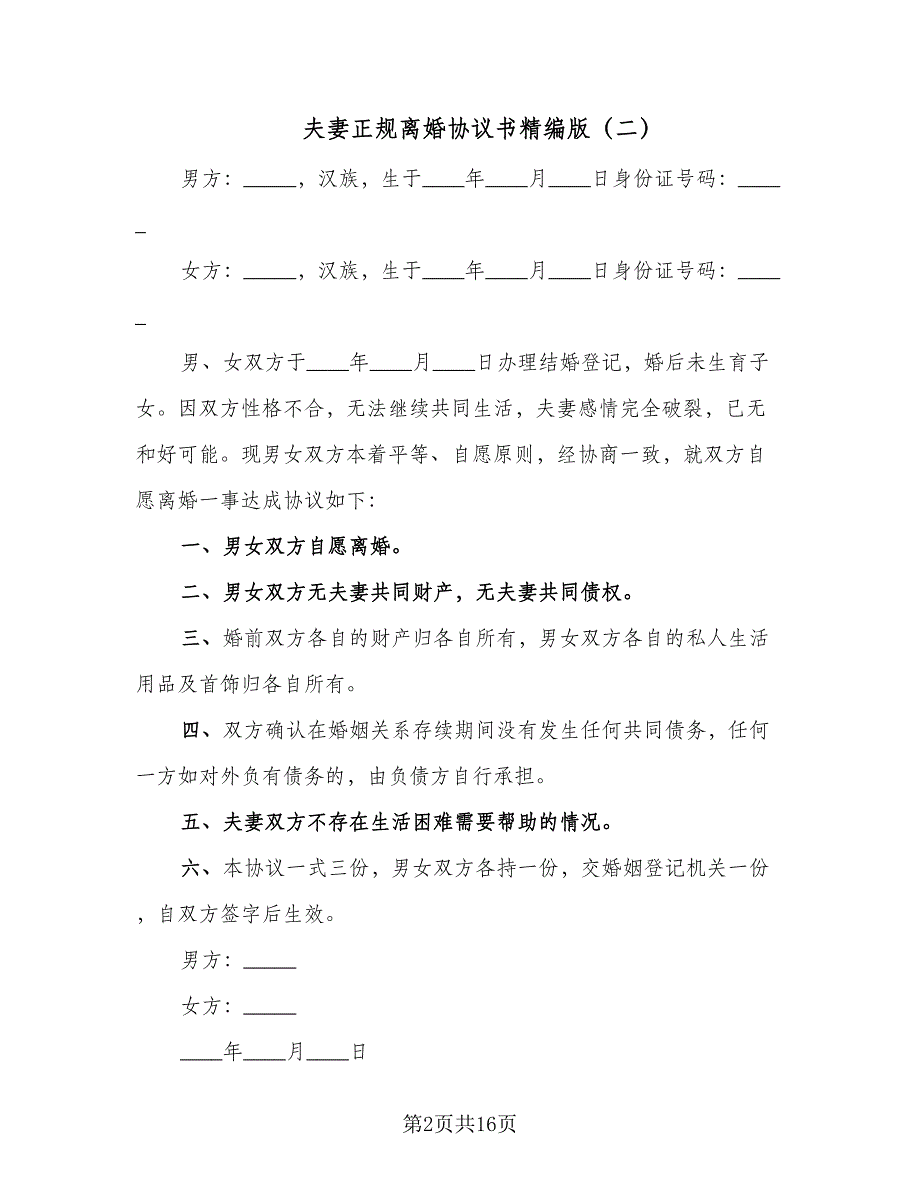 夫妻正规离婚协议书精编版（二）
男方：_____，汉族，生于____年____月____日身份证号码：____
_
女方：_____，汉族，生于____年____月____日身份证号码：____
_
男、女双方于____年____月____日办理结婚登记，婚后未生育子
女。因双方性格不合，无法继续共同生活，夫妻感情完全破裂，已无
和好可能。现男女双方本着平等、自愿原则，经协商一致，就双方自
愿离婚一事达成协议如下：
一、男女双方自愿离婚。
二、男女双方无夫妻共同财产，无夫妻共同债权。
三、婚前双方各自的财产归各自所有，男女双方各自的私人生活
用品及首饰归各自所有。
四、双方确认在婚姻关系存续期间没有发生任何共同债务，任何
一方如对外负有债务的，由负债方自行承担。
五、夫妻双方不存在生活困难需要帮助的情况。
六、本协议一式三份，男女双方各持一份，交婚姻登记机关一份
，自双方签字后生效。
男方：_____
女方：_____
____年____月____日
第2页共16页